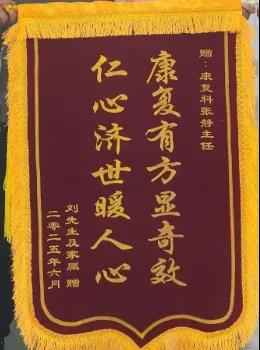 赠：康复科张静主任
康复有方显奇效
仁心济世暖人心
刘先生及家属 赠
二零二五年六月